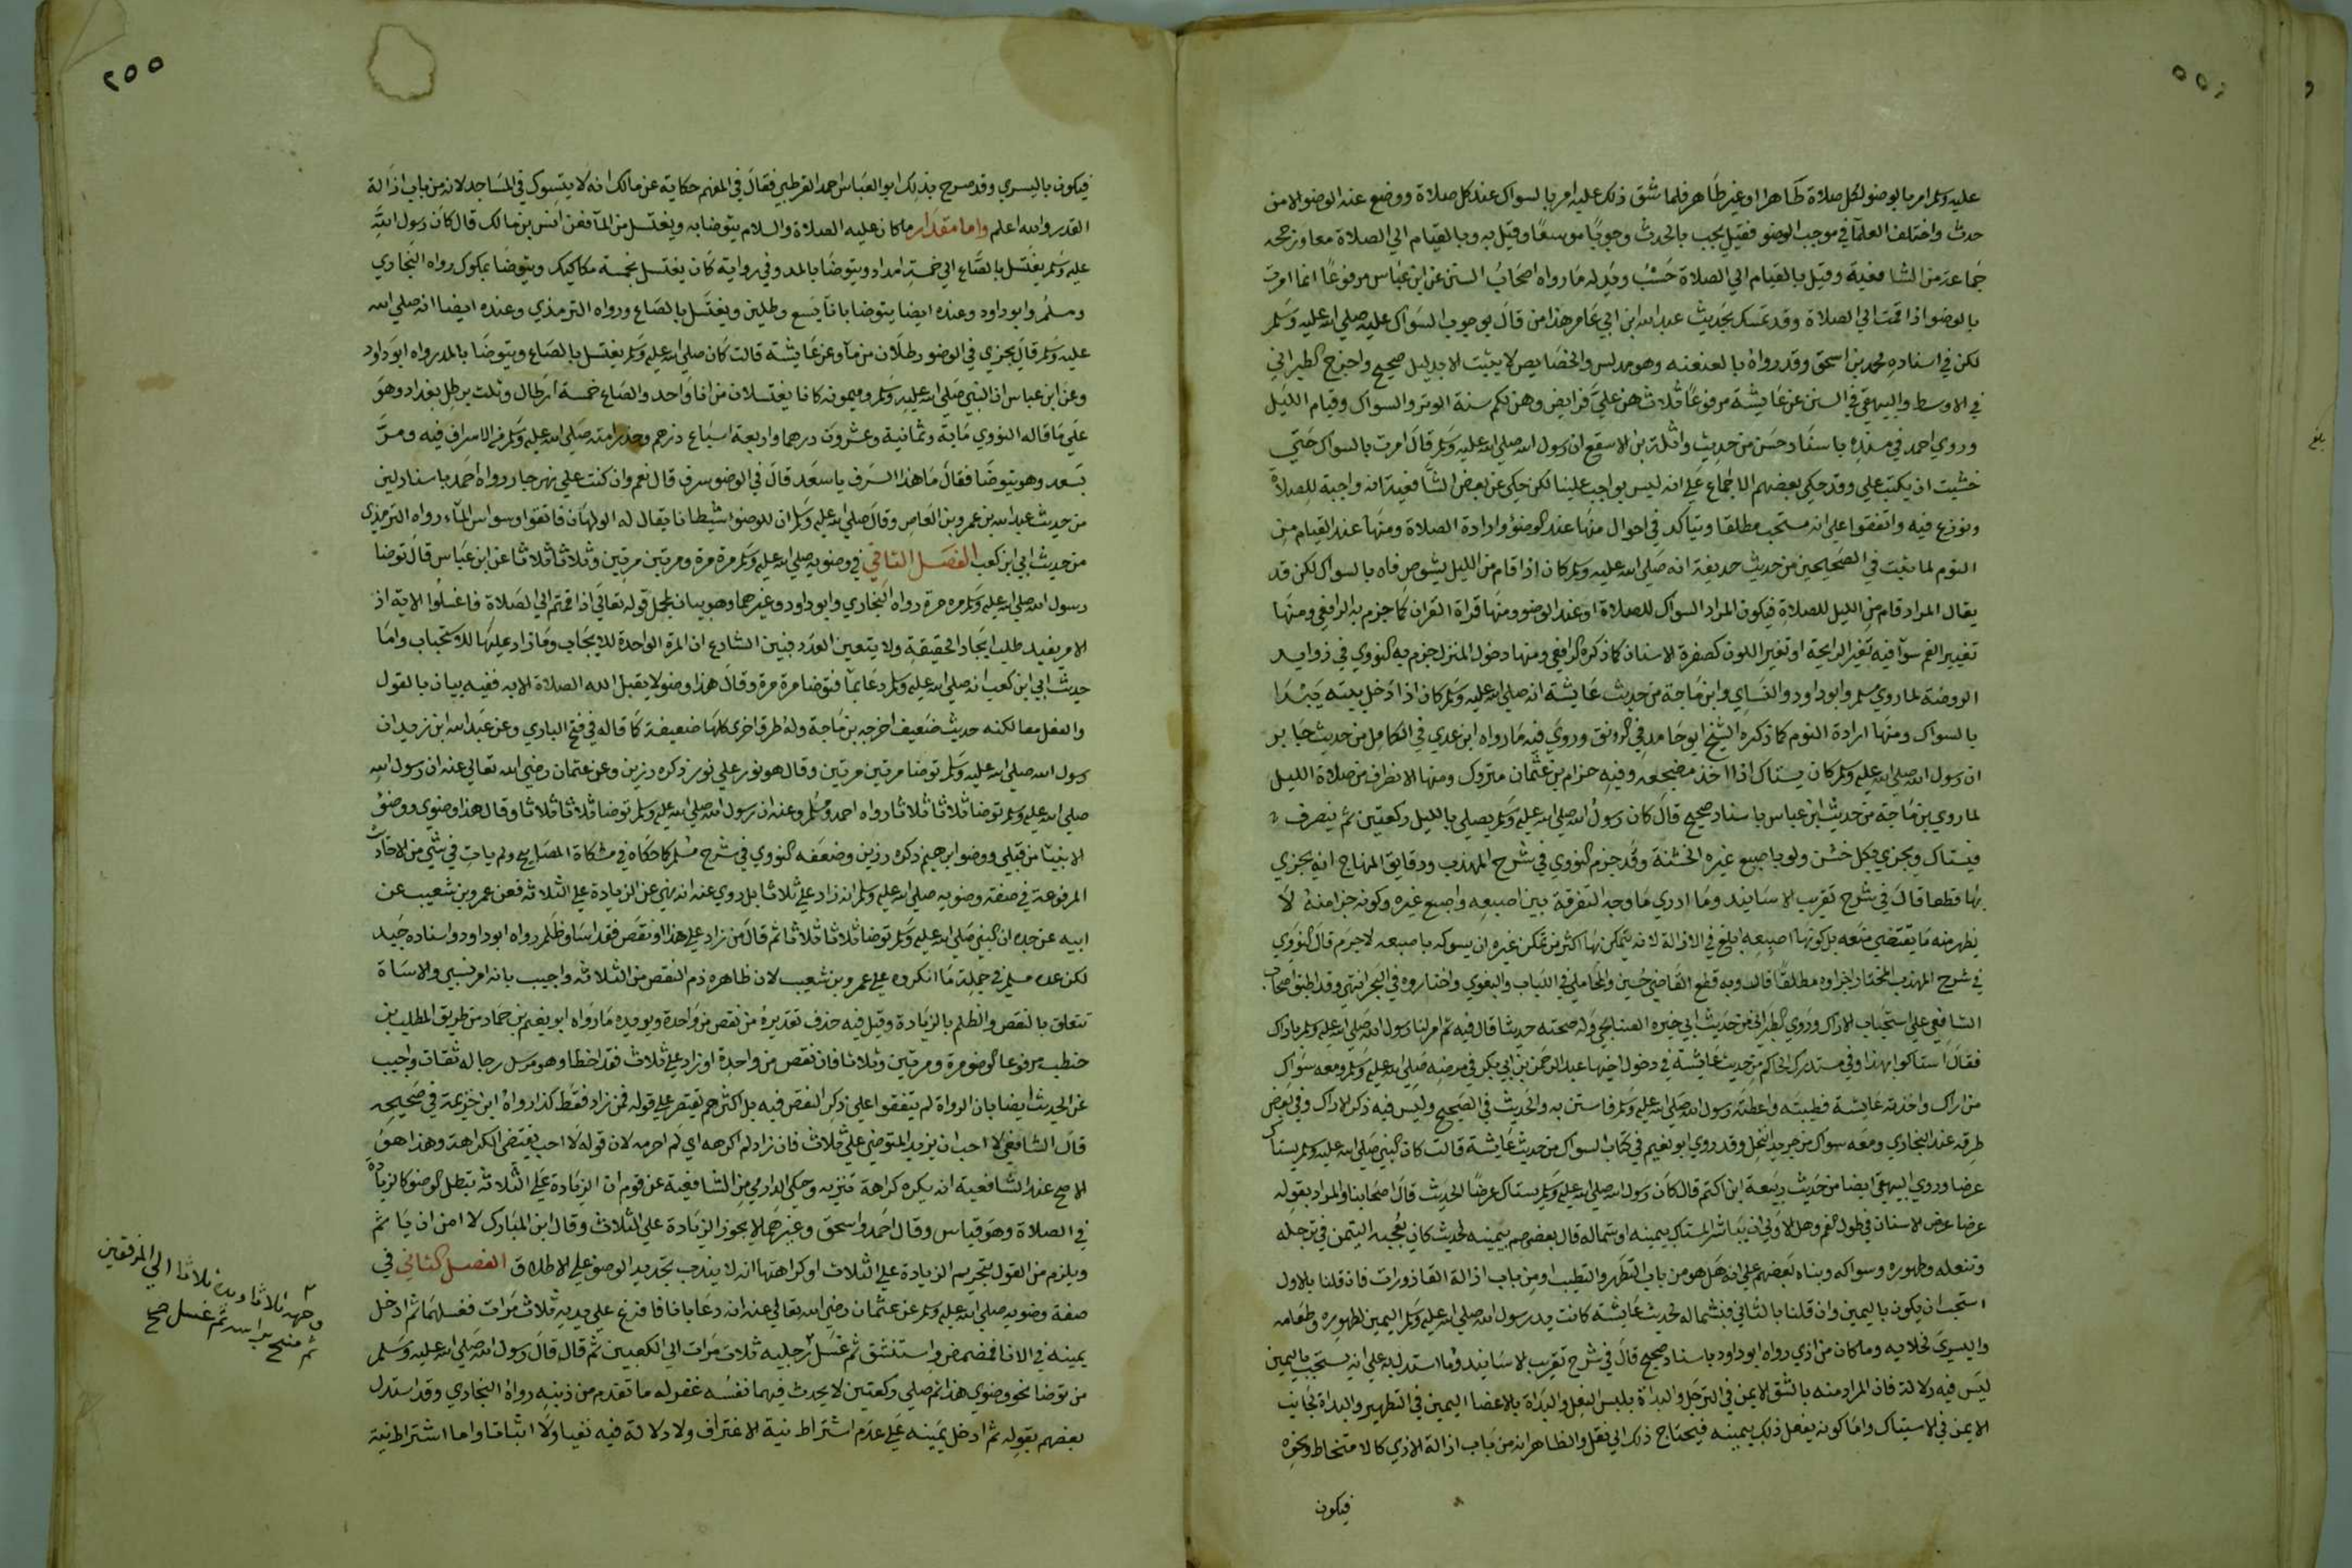 عليه وسلم امر بالوضو لكل صلاة طاهرا او غير طاهر فلما شق ذلك عليه امر بالسواك عند كل صلاة ووضع عنه الوضو الا من
حدث واختلف العلما في موجب الوضو فقيل يجب بالحدث وجوبا موسعا وقيل به وبالقيام الي الصلاة معا ورجحه
جماعة من الشافعية وقيل بالقيام الي الصلاة حسب ويدل له ما رواه اصحاب السنن عن ابن عباس مرفوعا انما امرت
بالوضو اذا قمت الي الصلاة وقد تمسك بحديث عبد الله ابن ابي عامر هذا من قال بوجوب السواك عليه صلي الله عليه وسلم
لكن في اسناده محمد بن اسحق وقد رواه بالعنعنه وهو مدلس والخصايص لا يثبت الا بدليل صحيح واخرج الطبراني
في الاوسط والبيهقي في السنن عن عايشة مرفوعا ثلاث هن علي فرايض وهن لكم سنة الوتر والسواك وقيام الليل
وروي احمد في مسنده باسناد حسن من حديث واثلة بن الاسقع ان رسول الله صلي الله عليه وسلم قال امرت بالسواك حتي
خشيت ان يكتب علي وقد حكي بعضهم الاجماع علي انه ليس بواجب علينا لكن حكي عن بعض الشافعية انه واجبة للصلاة
ونوزع فيه واتفقوا علي انه مستحب مطلقا ويتاكد في احوال منها عند الوضو وارادة الصلاة ومنها عند القيام من
النوم لما ثبت في الصحيحين من حديث حديفة انه صلي الله عليه وسلم كان اذا قام من الليل يشوص فاه بالسواك لكن قد
يقال المراد قام من الليل للصلاة فيكون المراد السواك للصلاة او عند الوضو ومنها قراة القران كما جزم به الرافعي ومنها
تغيير الفم سوآ فيه تغير الرايحة او تغير اللون كصفرة الاسنان كما ذكره الرافعي ومنها دخول المنزل جزم به النووي في زوايد
الروضة لما روي مسلم وابو داود والنساي وابن ماجة من حديث عايشة انه صلي الله عليه وسلم كان اذا دخل بيته يبدا
بالسواك ومنها ارادة النوم كما ذكره الشيخ ابو حامد في الرونق وروي فيه ما رواه ابن عدي في الكامل من حديث جابر
ان رسول الله صلي الله عليه وسلم كان يستاك اذا اخذ مضجعه وفيه حزام بن عثمان متروك ومنها الانصراف من صلاة الليل
لما روي بن ماجة من حديث ابن عباس باسناد صحيح قال كان رسول الله صلي الله عليه وسلم يصلي بالليل ركعتين ثم ينصرف
فيستاك ويجزي بكل خشن ولو باصبع غيره الخشنة وقد جزم النووي في شرح المهذب ودقايق المنهاج انه يجزي
بها قطعا قال في شرح تقريب الاسانيد وما ادري ما وجه التفرقة بين اصبعه واصبع غيره وكونه جزا منه لا
يظهر منه ما يقتضي منعه بل كونها اصبعه ابلغ في الازالة لانه يتمكن بها اكثر من تمكن غيره ان يسوكه باصبعه لا جرم قال النووي
في شرح المهذب المختار اجزاوه مطلقا قال وبه قطع القاضي حسين والمحاملي في اللباب والبغوي واختاروه في البحر انتهي وقد اطبق اصحاب
الشافعي علي استحباب الاراك وروي الطبراني من حديث ابي خيره الصباحي وله صحبته حديثا قال فيه ثم امر لنا رسول الله صلي الله عليه وسلم باراك
فقال استاكوا بهذا وفي مستدرك الحاكم من حديث عايشة في دخول اخيها عبد الرحمن بن ابي بكر في مرضه صلي الله عليه وسلم ومعه سواك
من اراك واخذته عايشة فطيبته واعطته رسول الله صلي الله عليه وسلم فاستن به والحديث في الصحيح وليس فيه ذكر الاراك وفي بعض
طرقه عند البخاري ومعه سواك من جريد النخل وقد روي ابو نعيم في كتاب السواك من حديث عايشة قالت كان النبي صلي الله عليه وسلم يستاك
عرضا وروي البيهقي ايضا من حديث ربيعة ابن اكثم قال كان رسول الله صلي الله عليه وسلم يستاك عرضا الحديث قال اصحابنا والمراد بقوله
عرضا عرض الاسنان في طول الفم وهل الاولي ان يباشر المستاك بيمينه او شماله قال بعضهم بيمينه لحديث كان يعجبه التيمن في ترجله
وتنعله وطهوره وسواكه وبناه بعضهم علي انه هل هو من باب التطهر والتطيب او من باب ازالة القاذورات فان قلنا بالاول
استحب ان يكون باليمين وان قلنا بالثاني فبشماله لحديث عايشة كانت يد رسول الله صلي الله عليه وسلم اليمين لطهوره وطعامه
واليسري لخلايه وما كان من اذي رواه ابو داود باسناد صحيح قال في شرح تقريب الاسانيد وما استدل به علي انه يستحب باليمين
ليس فيه دلالة فان المراد منه بالشق الايمن في الترجل والبداة بلبس النعل والبداة بالاعضا اليمين في التطهير والبداة بجانب
الايمن في الاستياك واما كونه يفعل ذلك بيمينه فيحتاج ذلك الي نقل والظاهر انه من باب ازالة الاذي كالامتخاط ونحوه
فيكون
٢٥٥
فيكون باليسري وقد صرح بذلك ابو العباس احمد القرطبي فقال في المفهم حكاية عن مالك انه لا يتسوك في المساجد لانه من باب ازالة
القدر والله اعلم واما مقدار ما كان عليه الصلاة والسلام يتوضا به ويغتسل من المآ فعن انس بن مالك قال كان رسول الله
عليه وسلم يغتسل بالصاع الي خمسة امداد ويتوضا بالمد وفي رواية كان يغتسل بخمسة مكاكيك ويتوضا بمكوك رواه البخاري
ومسلم وابو داود وعنده ايضا يتوضا بانآ يسع رطلين ويغتسل بالصاع ورواه الترمذي وعنده ايضا انه صلي الله
عليه وسلم قال يجزي في الوضو رطلان من مآ وعن عايشة قالت كان صلي الله عليه وسلم يغتسل بالصاع ويتوضا بالمد رواه ابو داود
وعن ابن عباس ان النبي صلي الله عليه وسلم وميمونه كانا يغتسلان من انا واحد والصاع خمسة ارطال وثلث برطل بغداد وهو
علي ما قاله النووي ماية وثمانية وعشرون درهما واربعة اسباع درهم وحذر امته صلي الله عليه وسلم من الاسراف فيه ومر
بسعد وهو يتوضا فقال ما هذا السرف يا سعد قال في الوضو سرف قال نعم وان كنت علي نهر جار رواه احمد باسناد لين
من حديث عبد الله بن عمرو بن العاص وقال صلي الله عليه وسلم ان للوضو شيطانا يقال له الولهان فاتقوا وسواس المآء رواه الترمذي
من حديث ابي ابن كعب الفصل الثاني في وضويه صلي الله عليه وسلم مرة مرة ومرتين مرتين وثلاثا ثلاثا عن ابن عباس قال توضا
رسول الله صلي الله عليه وسلم مره مرة رواه البخاري وابو داود وغيرهما وهو بيان لمجمل قوله تعالي اذا قمتم الي الصلاة فاغسلوا الاية اذ
الامر يفيد طلب ايجاد الحقيقة ولا يتعين العدد فبين الشارع ان المرة الواحدة للايجاب وما زاد عليها للاستحباب واما
حديث ابي ابن كعب انه صلي الله عليه وسلم دعا بمآ فتوضا مرة مرة وقال هذا وضو لا يقبل الله الصلاة الا به ففيه بيان بالقول
والفعل معا لكنه حديث ضعيف اخرجه بن ماجة وله طرق اخري كلها ضعيفة كما قاله في فتح الباري وعن عبد الله ابن زيد ان
رسول الله صلي الله عليه وسلم توضا مرتين مرتين وقال هو نور علي نور ذكره رزين وعن عثمان رضي الله تعالي عنه ان رسول الله
صلي الله عليه وسلم توضا ثلاثا ثلاثا رواه احمد ومسلم وعنه ان رسول الله صلي الله عليه وسلم توضا ثلاثا ثلاثا وقال هذا وضوي ووضو
الانبيا من قبلي ووضو ابرهيم ذكره رزين وضعفه النووي في شرح مسلم كما حكاه في مشكاة المصابيح ولم يات في شي من الاحاديث
المرفوعة في صفة وضويه صلي الله عليه وسلم انه زاد علي ثلاثا بل روي عنه انه نهي عن الزيادة علي الثلاثة فعن عمرو بن شعيب عن
ابيه عن جده ان النبي صلي الله عليه وسلم توضا ثلاثا ثلاثا ثم قال من زاد علي هذا او نقص فقد اسا وظلم رواه ابو داود واسناده جيد
لكن عده مسلم في جملة ما انكروه علي عمرو بن شعيب لان ظاهره ذم النقص من الثلاثة واجيب بانه امر نسبي والاساة
تتعلق بالنقص والظلم بالزيادة وقيل فيه حذف تقديره من نقص من واحدة ويويده ما رواه ابو نعيم بن حماد من طريق المطلب بن
حنطب مرفوعا الوضو مرة ومرتين وثلاثا فان نقص من واحدة او زاد علي ثلاث فقد اخطا وهو مرسل رجاله ثقات واجيب
عن الحديث ايضا بان الرواة لم يتفقوا علي ذكر النقص فيه بل اكثرهم يقتصر علي قوله فمن زاد فقط كذا رواه ابن خزيمة في صحيحه
قال الشافعي لا احب ان يزيد المتوضي علي ثلاث فان زاد لم اكرهه اي لم احرمه لان قوله لا احب يقتضي الكراهة وهذا هو
الاصح عند الشافعية انه يكره كراهة تنزيه وحكي الدارمي من الشافعية عن قوم ان الزيادة علي الثلاثة تبطل الوضو كالزيادة
في الصلاة وهو قياس وقال احمد واسحق وغيرهما لا يجوز الزيادة علي الثلاث وقال ابن المبارك لا امن ان ياثم
ويلزم من القول بتحريم الزيادة علي الثلاث او كراهتها انه لا يندب تجديد الوضو علي الاطلاق الفصل الثاني في
صفة وضويه صلي الله عليه وسلم عن عثمان رضي الله تعالي عنه انه دعا بانا فافرغ علي يديه ثلاث مرات فغسلهما ثم ادخل
يمينه في الانا فمضمض واستنشق ثم غسل رجليه ثلاث مرات الي الكعبين ثم قال قال رسول الله صلي الله عليه وسلم
من توضا نحو وضوي هذا ثم صلي ركعتين لا يحدث فيهما نفسه غفر له ما تقدم من ذنبه رواه البخاري وقد استدل
بعضهم بقوله ثم ادخل يمينه علي عدم اشتراط نية الاغتراف ولا دلالة فيه نفيا ولا اثباتا واما اشتراط نية
وجهه ثلاثا ويديه ثلاثا الي المرفقين
ثم مسح براسه ثم غسل صح